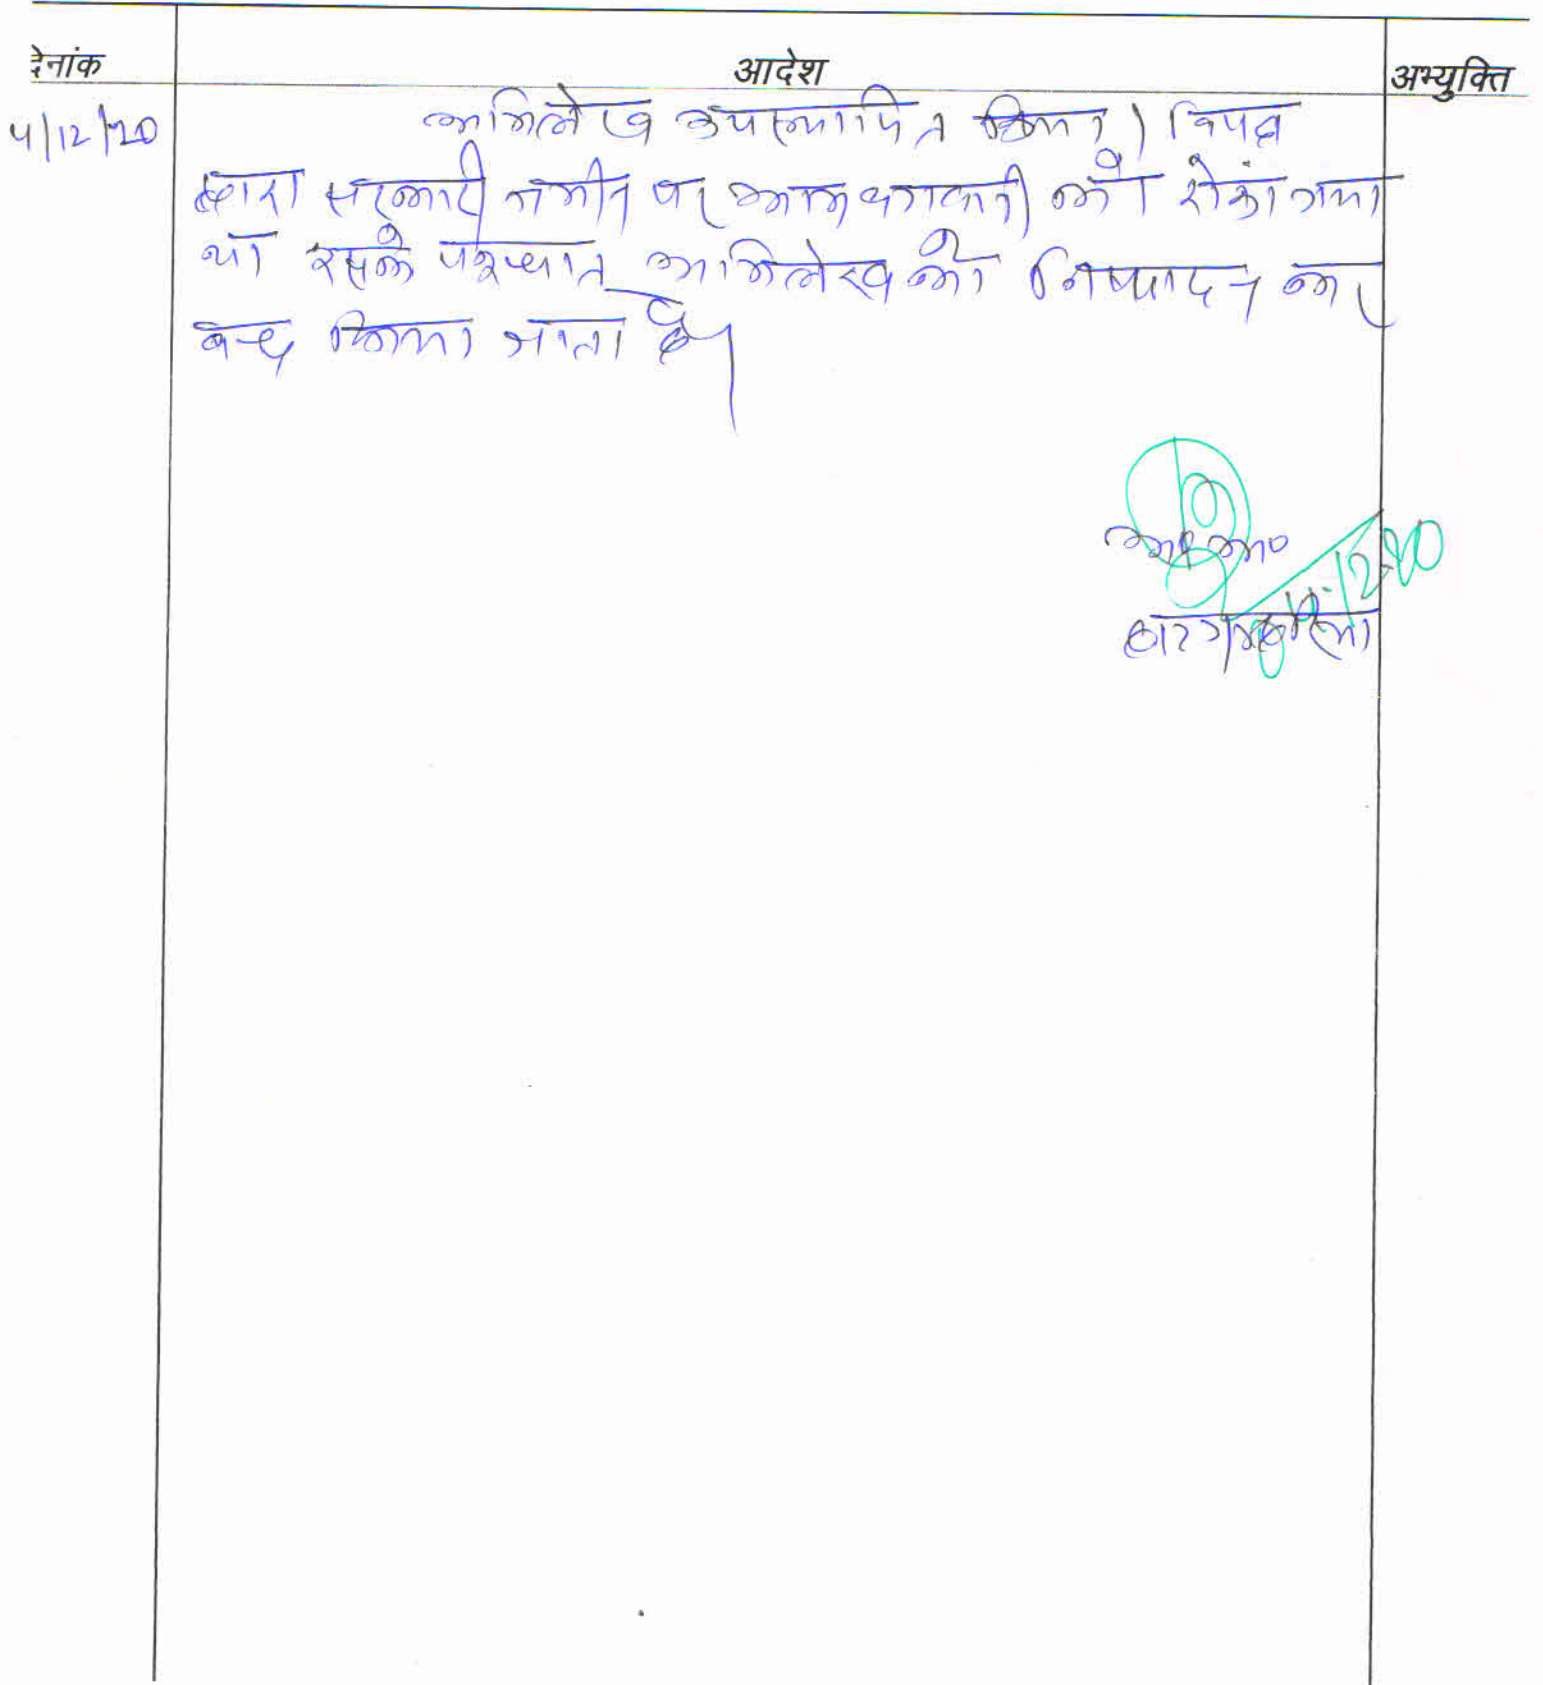 देनांक आदेश अभ्युक्ति
4/12/20 अभिलेख उपस्थापित किया। विपक्ष
द्वारा सरकारी जमीन पर को रोका गया
था इसके पश्चात अभिलेख को निष्पादन कर
बन्द किया जाता है।
12-20